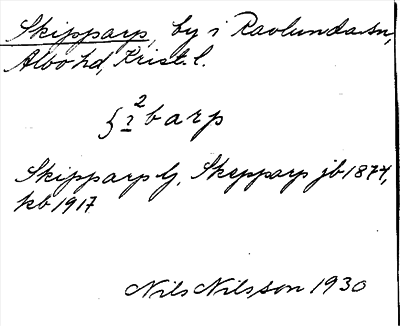 Skipparp, by i Ravlunda sn,
Albo hd, Krist. l.
ʃ ʔ²barp
Skipparp G, Skepparp jb 1874,
kb 1917
Nils Nilsson 1930